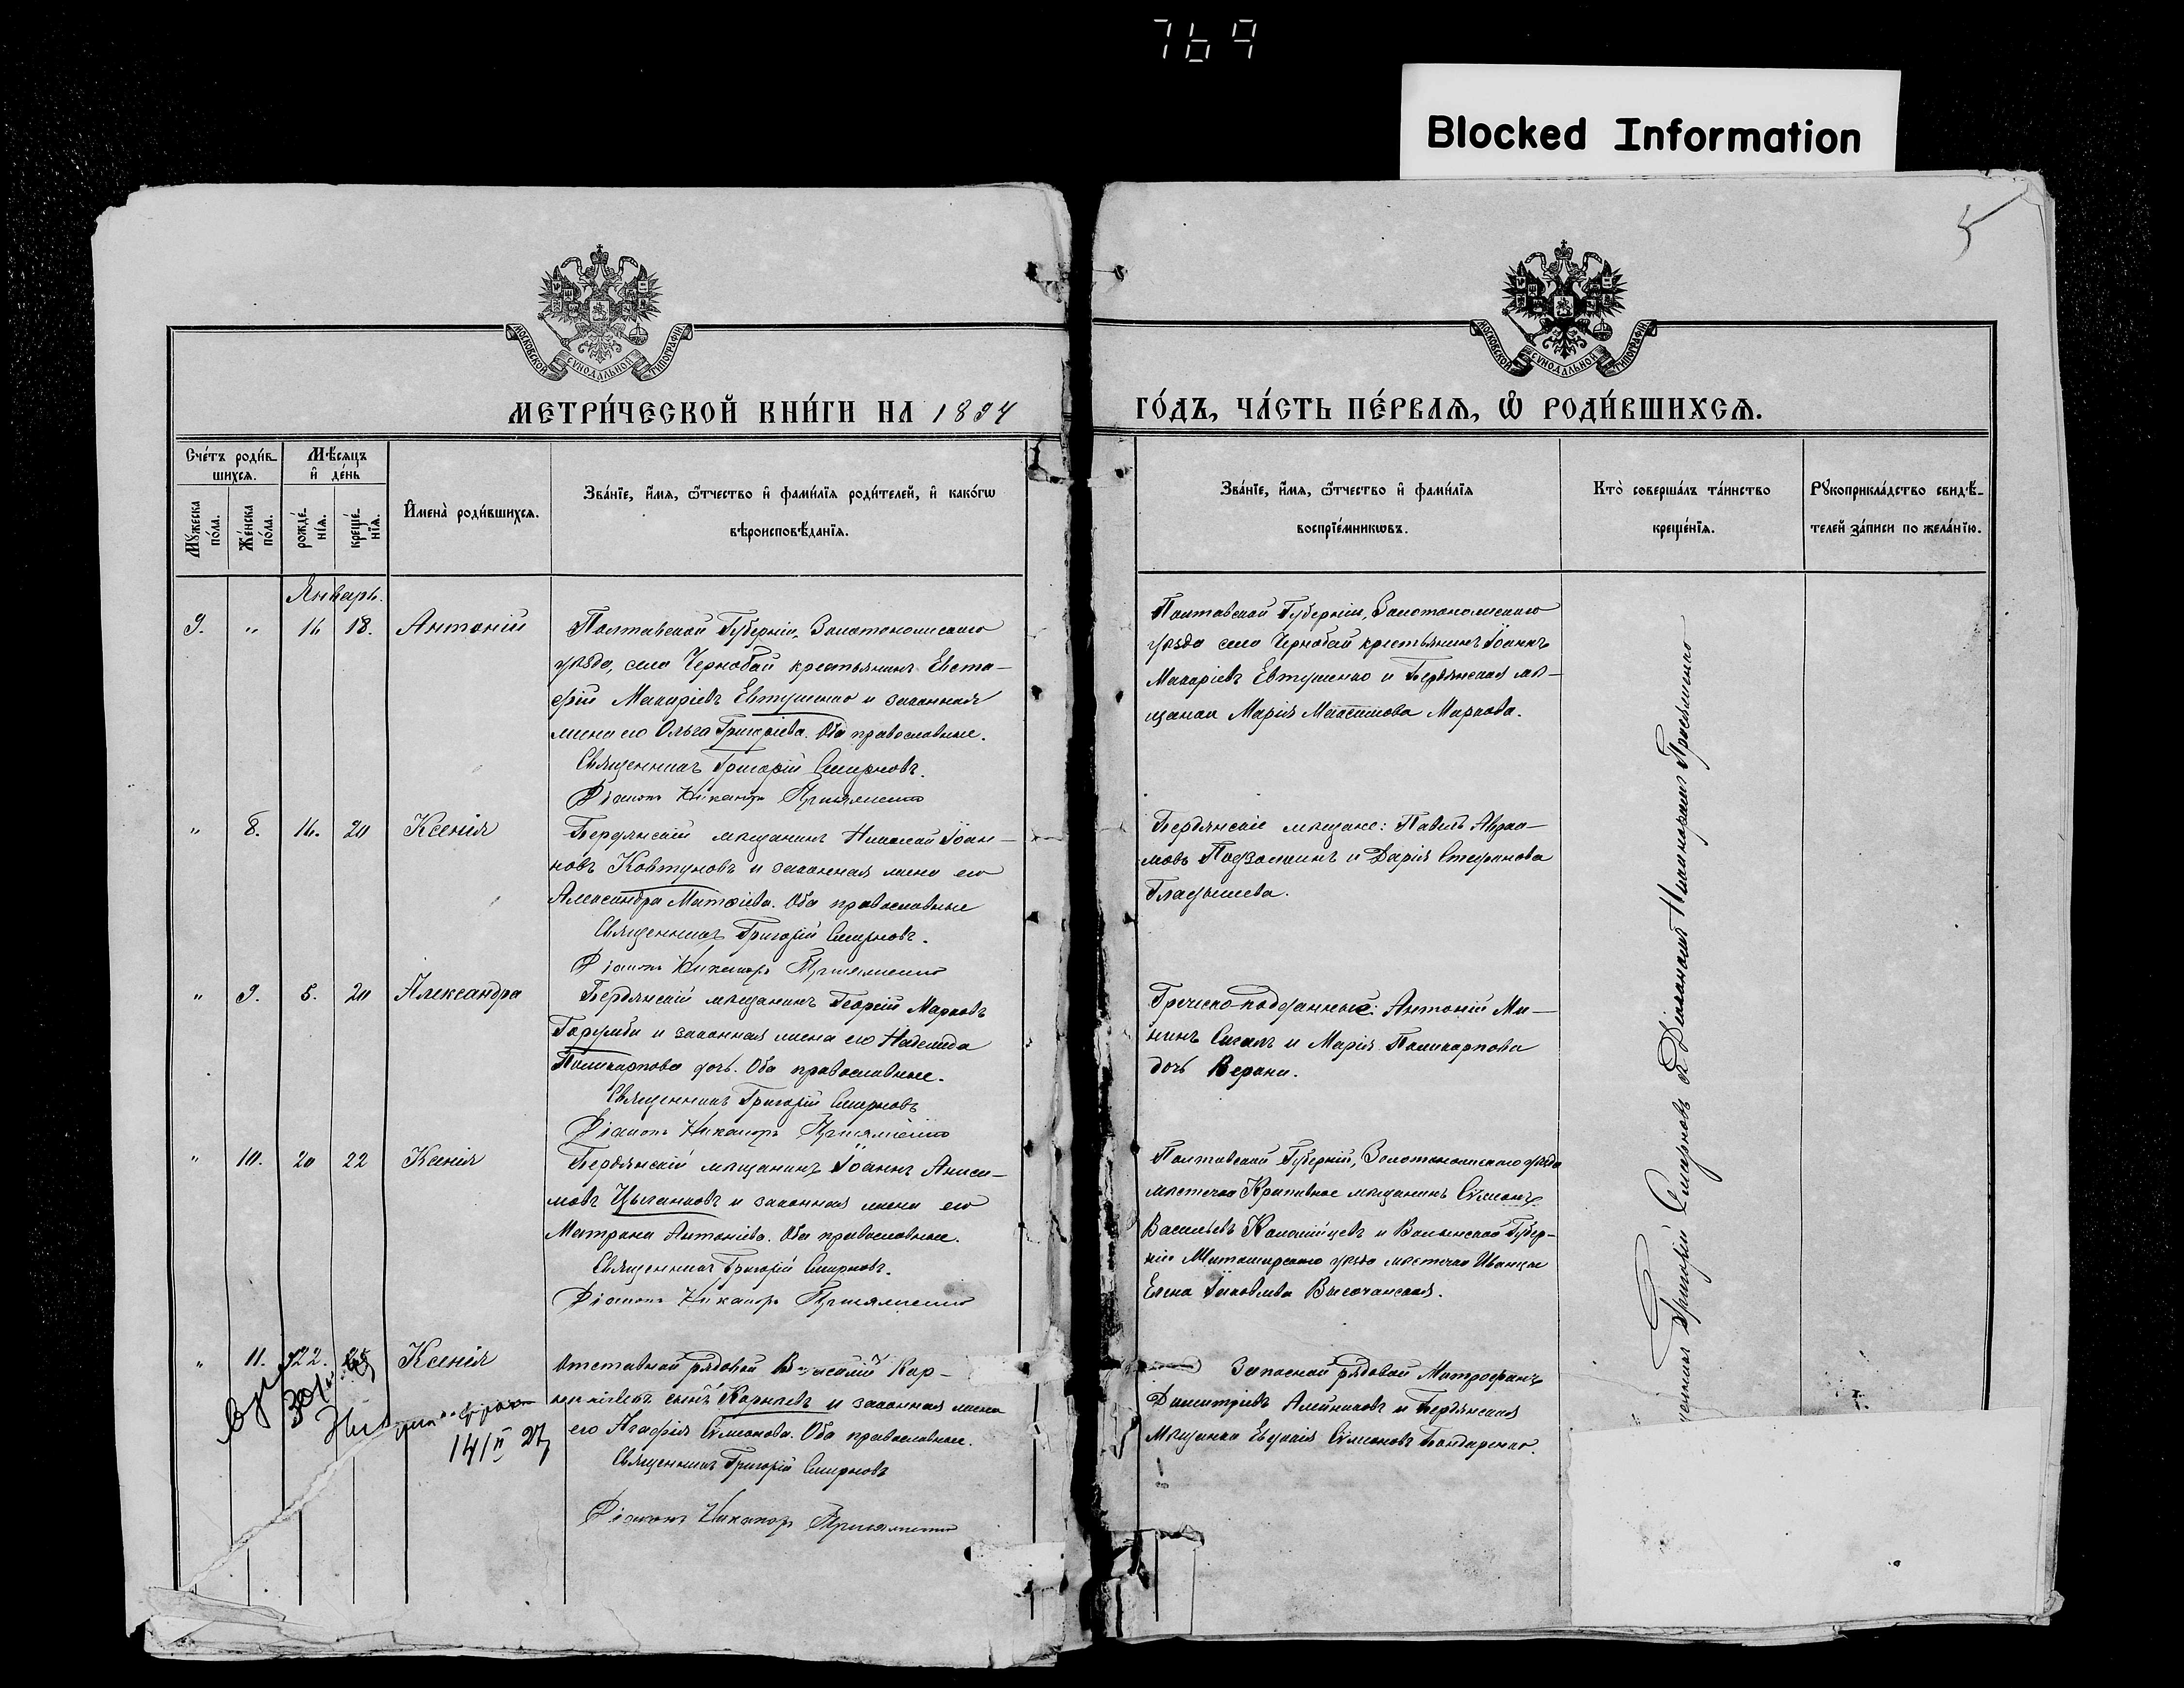 769
Blocked Information
5
МОСКОВСКОЙ СУНОДАЛЬНОЙ ТИПОГРАФІИ
МОСКОВСКОЙ СУНОДАЛЬНОЙ ТИПОГРАФІИ
МЕТРИ́ЧЕСКОЙ КНИ́ГИ НА 1894
ГО́ДЪ, ЧА́СТЬ ПЕ́РВАѦ, Ѡ҆ РОДИ́ВШИХСѦ.
Сче́тъ роди́в-
шихсѧ.
Мѣ́сѧцъ
и҆ де́нь
Мꙋ́жеска
по́ла.
Же́нска
по́ла.
рожде́-
нїѧ.
креще́-
нїѧ.
И҆мена̀ роди́вшихсѧ.
Зва́нїе, и҆́мѧ, ѻ҆́тчество и҆ фами́лїѧ роди́телей, и҆ како́гѡ
вѣроисповѣ́данїѧ.
Зва́нїе, и҆́мѧ, ѻ҆́тчество и҆ фами́лїѧ
воспрїе́мникѡвъ.
Кто̀ соверша́лъ та́инство
креще́нїѧ.
Рꙋкоприкла́дство свидѣ́-
телей за́писи по жела́нїю.
Январь.
9. " 16 18. Антоній
Полтавской Губерніи, Золотоношскаго
уѣзда, села Чернобай крестьянинъ Евста-
фій Макаріевъ Евтушенко и законная
жена его Ольга Григоріева. Оба православные.
Священникъ Григорій Смирновъ.
Діаконъ Никаноръ
Полтавской Губерніи, Золотоношскаго
уѣзда села Чернобай крестьянинъ Іоаннъ
Макаріевъ Евтушенко и Бердянская мѣ-
щанка Марія Максимова Маркова.
" 8. 16. 20 Ксенія
Бердянскій мѣщанинъ Николай Іоан-
новъ Ковтуновъ и законная жена его
Александра Матѳіева. Оба православные
Священникъ Григорій Смирновъ.
Діаконъ Никаноръ
Бердянскіе мѣщане: Павелъ Авраа-
мовъ и Дарія Стефанова
Гладышева.
" 9. 5. 20 Александра
Бердянскій мѣщанинъ Георгій Марковъ
и законная жена его Надежда
Поликарпова дочь. Оба православные.
Священникъ Григорій Смирновъ
Діаконъ Никаноръ
Греческо-подданные: Антоній Ми-
нинъ и Марія Поликарпова
дочь Верани.
" 10. 20 22 Ксенія
Бердянскій мѣщанинъ Іоаннъ Аниси-
мовъ Цыганковъ и законная жена его
Матрона Антоніева. Оба православные.
Священникъ Григорій Смирновъ.
Діаконъ Никаноръ
Полтавской Губерніи, Золотоношскаго уѣзда
мѣстечка Крапивное мѣщанинъ Сѵмеонъ
Васильевъ Коломійцевъ и Волынской Губер-
ніи Житомирскаго уѣзда мѣстечка
Елена Іаковлева Височанская.
" 11. 22. Ксенія
Отставной рядовой Кор-
сынъ Корнѣевъ и законная жена
его Агафія Сѵмеонова. Оба православные.
Священникъ Григорій Смирновъ
Діаконъ Никаноръ
Запасной рядовой Митрофанъ
Димитріевъ Алейниковъ и Бердянская
Мѣщанка Сѵмеонова Бондаренко.
Григорій Смирновъ с Діакономъ Никаноромъ